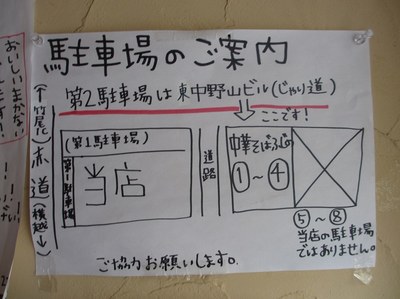 駐車場のご案内
第2駐車場は東中野山ビル(じゃり道)
ここです!
(↑竹尾) 赤道 (横越↓)
(第1駐車場)
第1駐車場
当店
道路
中華そばふじの
①〜④
⑤〜⑧
当店の駐車場
ではありません。
ご協力お願いします。